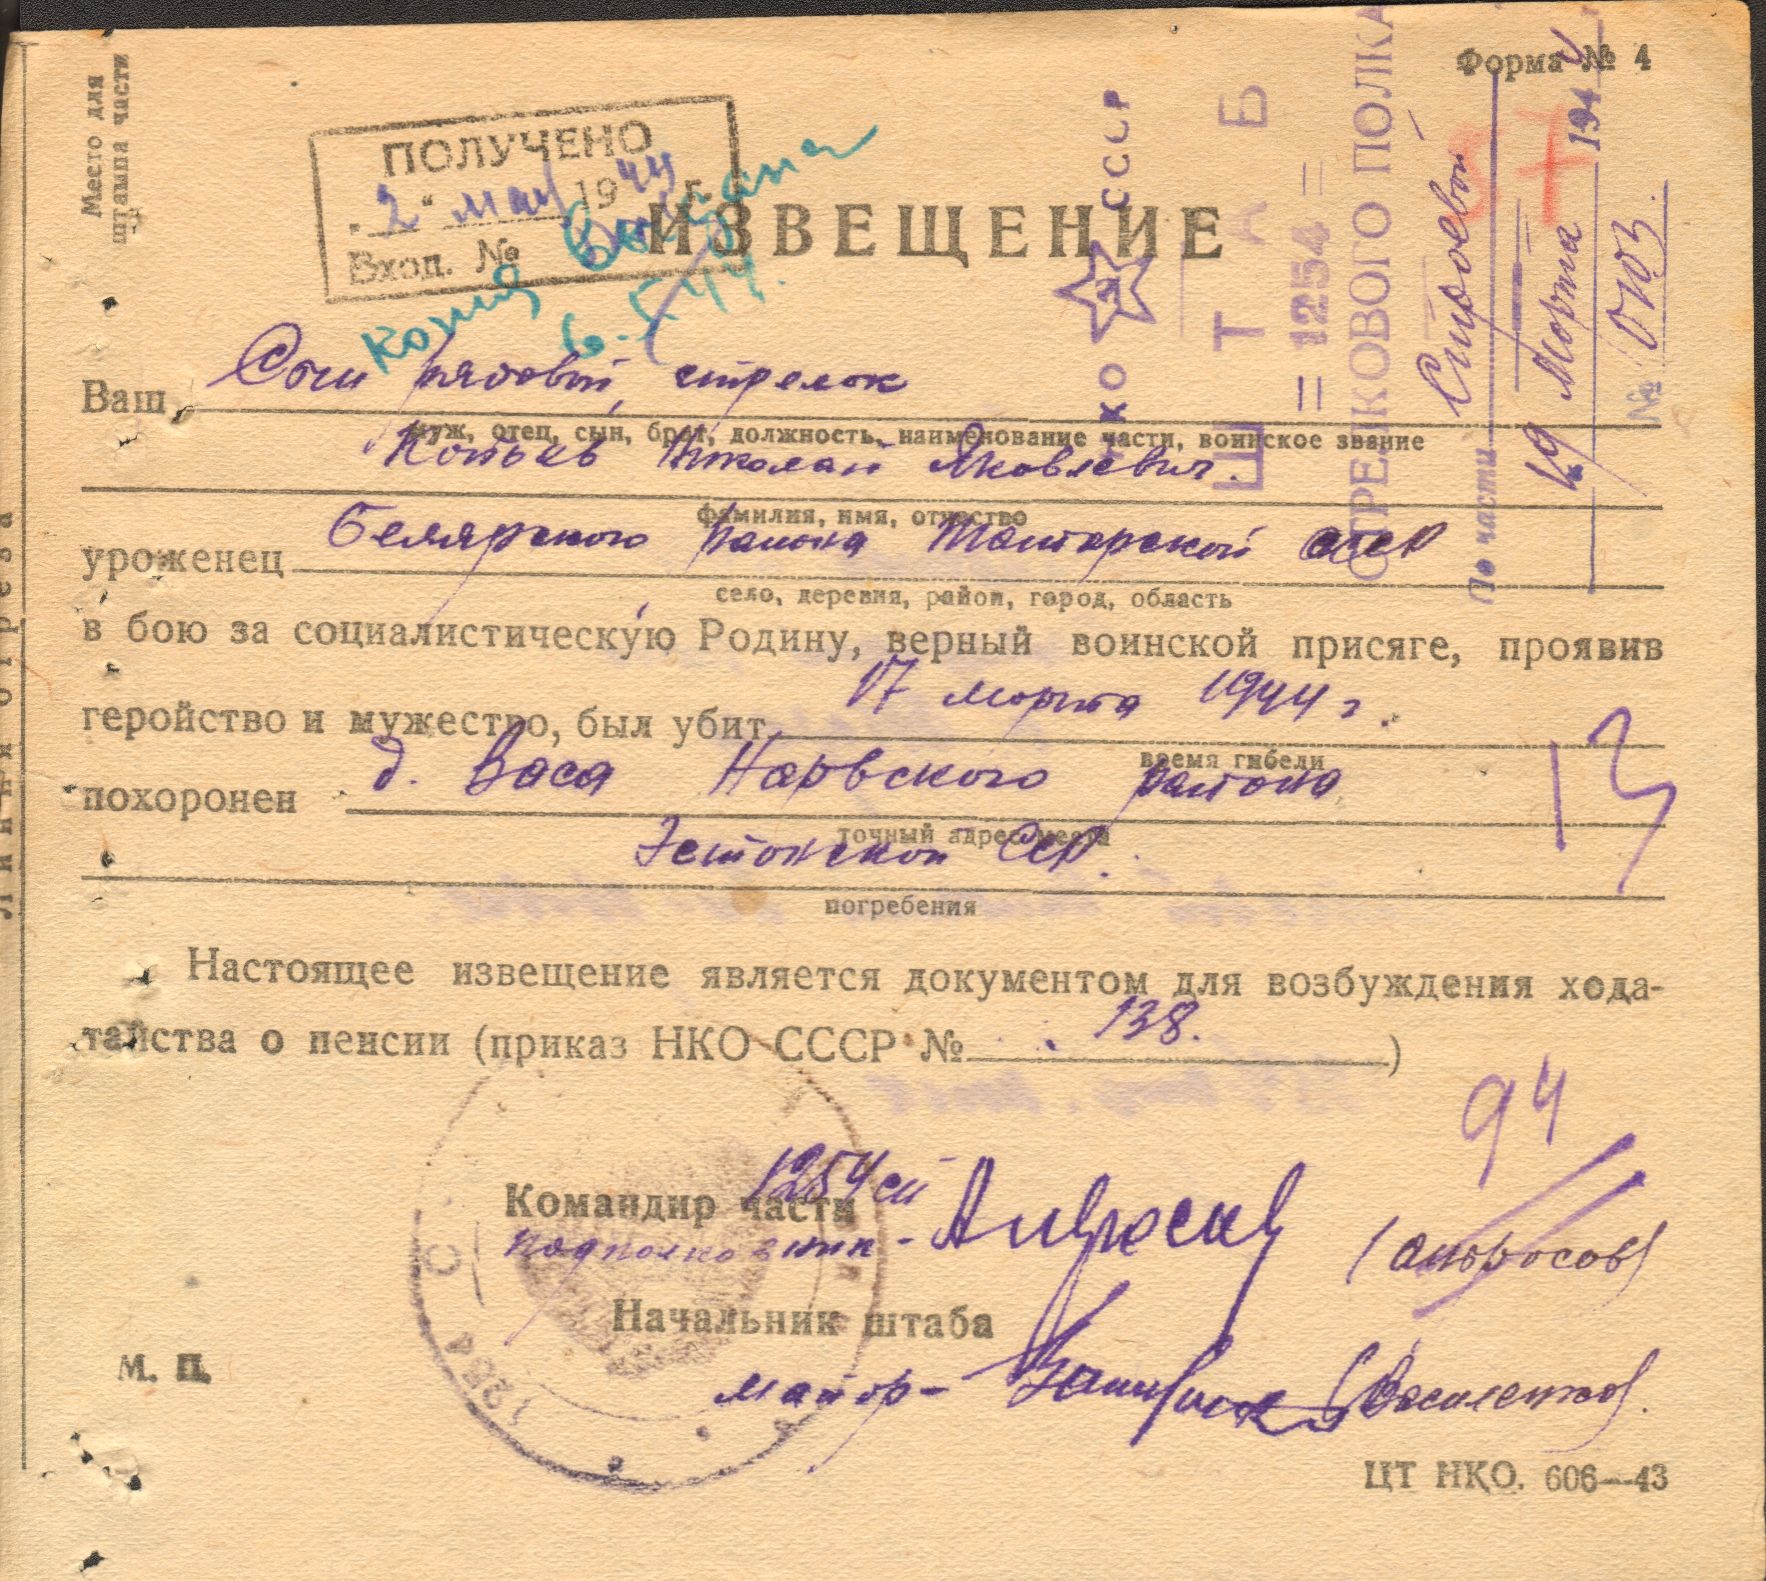 Форма № 4
Место для
штампа части
ПОЛУЧЕНО
"2" мая 1944 г.
Вход. №
Копия выдана
6-5-44.
ИЗВЕЩЕНИЕ
НКО СССР
ШТАБ
= 1254 =
СТРЕЛКОВОГО ПОЛКА
По части Строевой
19 марта 1944
№ 0703.
Ваш Сын рядовой, стрелок
муж, отец, сын, брат, должность, наименование части, воинское звание
Николай Яковлевич.
фамилия, имя, отчество
уроженец Билярского района Татарской АССР
село, деревня, район, город, область
в бою за социалистическую Родину, верный воинской присяге, проявив
геройство и мужество, был убит 17 марта 1944 г.
время гибели
похоронен д. Васа Нарвского района
точный адрес места
Эстонской ССР.
погребения
Настоящее извещение является документом для возбуждения хода-
тайства о пенсии (приказ НКО СССР № 138.)
94
Командир части 1254 сп
подполковник - (Амбросов)
Начальник штаба
майор - (Василенко).
М. П.
1254
ЦТ НКО. 606—43
Линия отреза
13